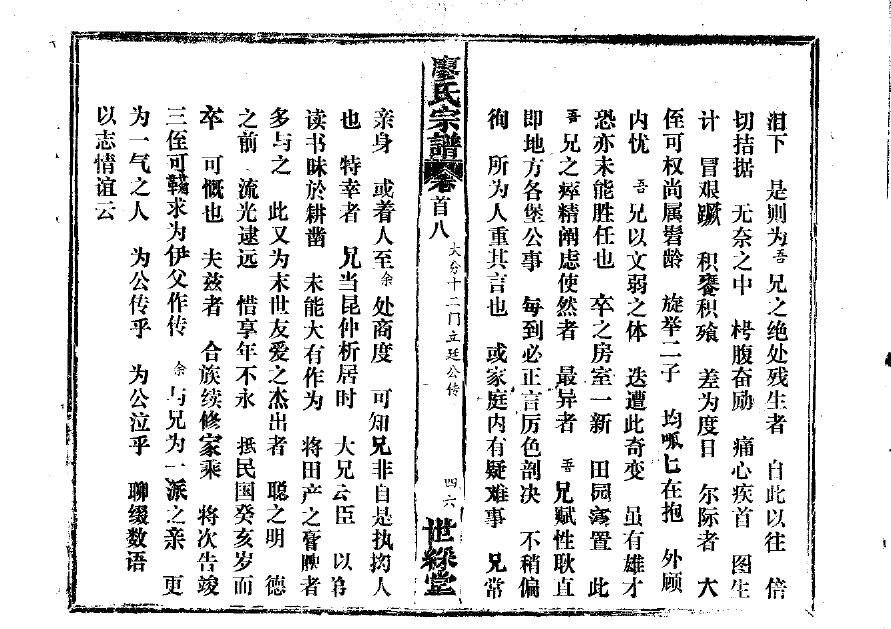 泪下　是则为吾兄之绝处残生者　自此以往　倍
切拮据　无奈之中　枵腹奋励　痛心疾首　图生
计　冒艰蹶　积饔积飧　差为度日　尔际者　大
侄可权尚属髫龄　旋举二子　均呱匕在抱　外顾
内忧　吾兄以文弱之体　迭遭此奇变　虽有雄才
恐亦未能胜任也　卒之房室一新　田园　置　此
吾兄之瘁精阐虑使然者　最异者　吾兄赋性耿直
即地方各堡公事　每到必正言厉色剖决　不稍偏
徇　所为人重其言也　或家庭内有疑难事　兄常
廖氏宗谱　卷首八　大分十二门立廷公传　四六　世綵堂
亲身　或着人至余处商度　可知兄非自是执拗人
也　特幸者　兄当昆仲析居时　大兄云臣　以
读书昧於耕凿　未能大有作为　将田产之膏腴者
多与之　此又为末世友爱之杰出者　聪之明　德
之前　流光逮远　惜享年不永　抵民国癸亥岁而
卒　可慨也　夫兹者　合族续修家乘　将次告竣
三侄可　求为伊父作传　余与兄为一派之亲　更
为一气之人　为公传乎　为公泣乎　聊缀数语
以志情谊云